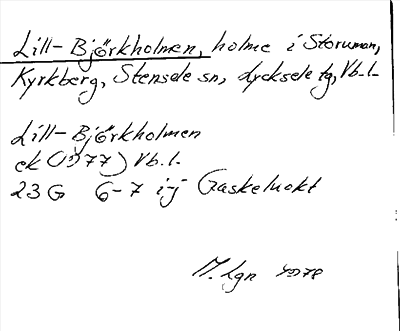 Lill-Björkholmen, holme i Storuman,
Kyrkberg, Stensele sn, Lycksele tg, Vb.l.
Lill-Björkholmen
ek (1977) Vb.l.
23 G 6-7 ij Gaskeluokt
M. Lgn 1978